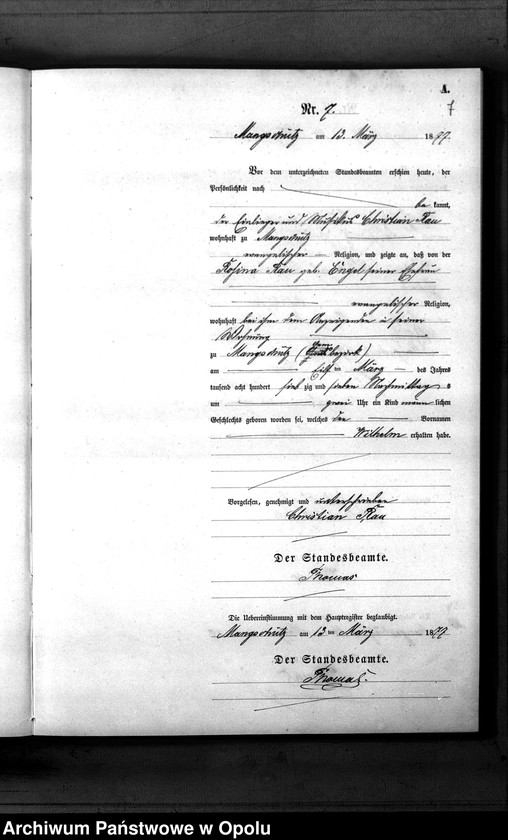 A.
Nr. 7.
7
Mangschütz am 13. März 1877.
Vor dem unterzeichneten Standesbeamten erschien heute, der
Persönlichkeit nach
be kannt,
der Einlieger und Musikus Christian Rau
wohnhaft zu Mangschütz
evangelischer Religion, und zeigte an, daß von der
Rosina Rau geb. Engel seiner Ehefrau
evangelischer Religion,
wohnhaft bei ihm dem Anzeigenden in seiner
Wohnung
zu Mangschütz ( bezirk)
am elf ten März des Jahres
tausend acht hundert sieb zig und sieben Nachmittag s
um zwei Uhr ein Kind männ lichen
Geschlechts geboren worden sei, welches den Vornamen
Wilhelm erhalten habe.
Vorgelesen, genehmigt und unterschrieben
Christian Rau
Der Standesbeamte.
Thomas
Die Uebereinstimmung mit dem Hauptregister beglaubigt.
Mangschütz am 13 ten März 1877
Der Standesbeamte.
Thomas.
Archiwum Państwowe w Opolu